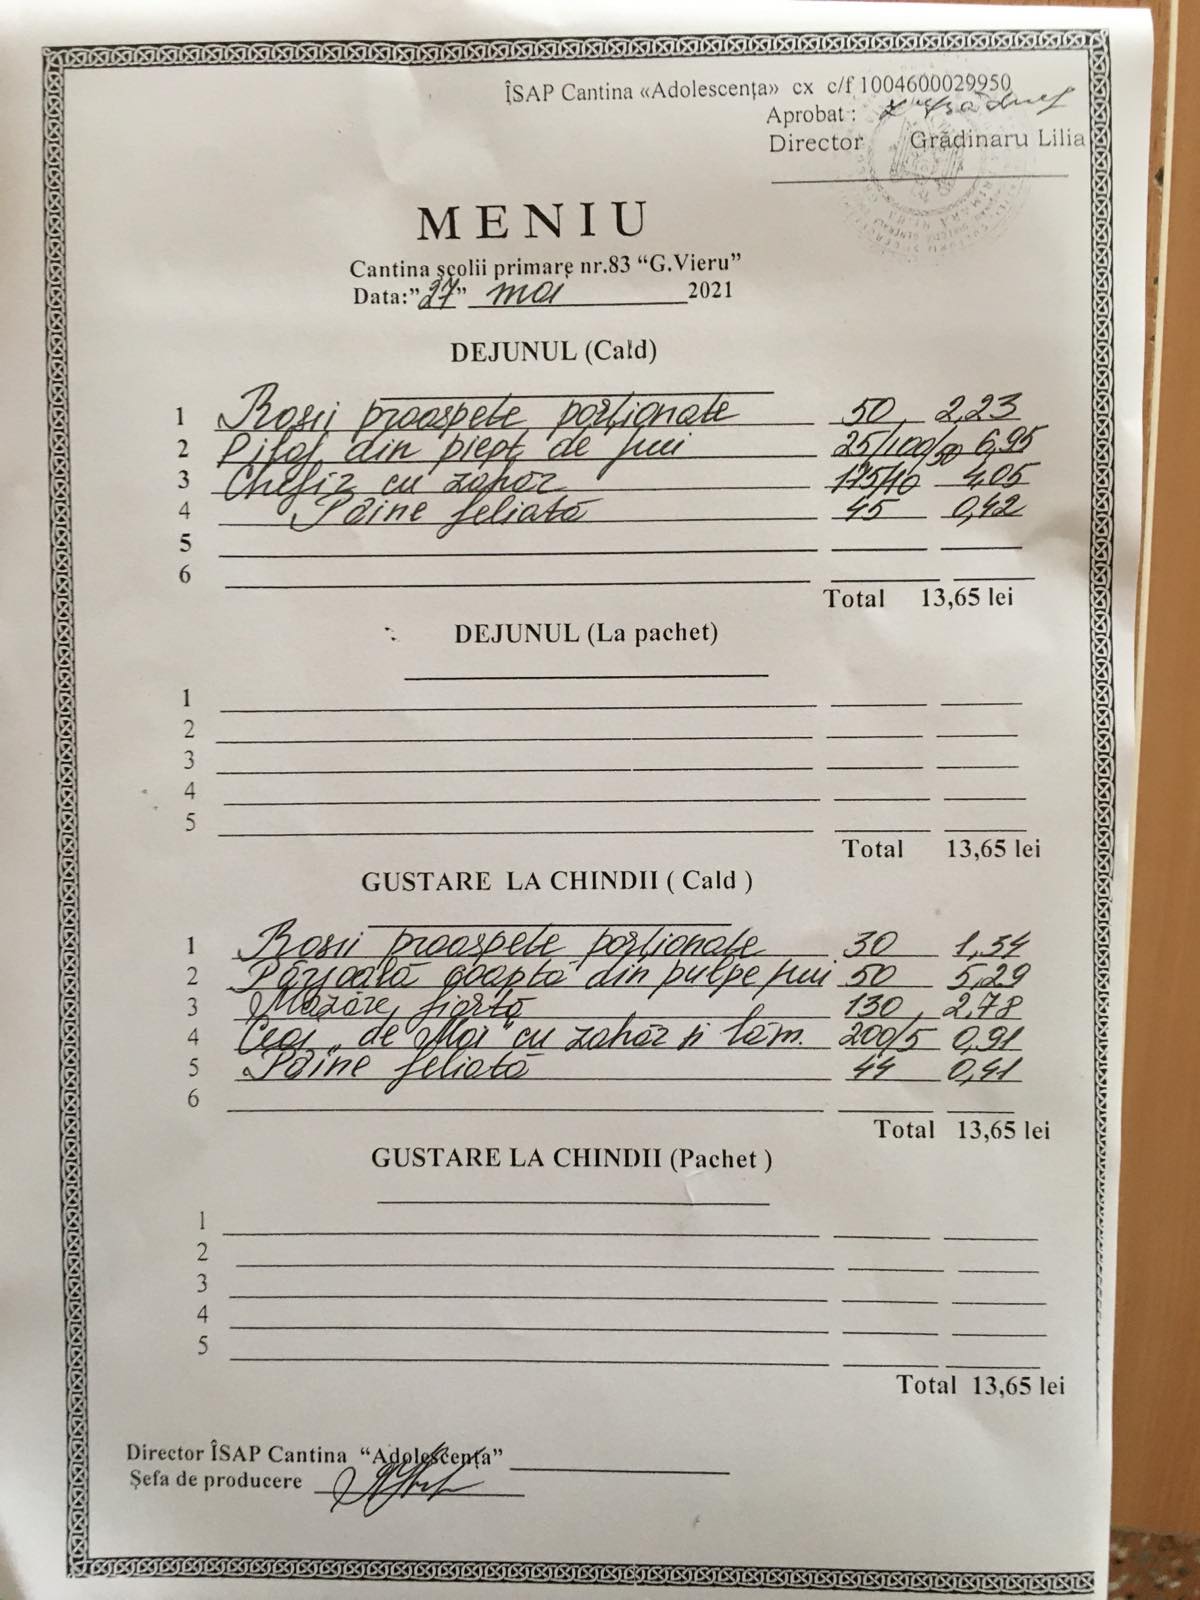 ÎSAP Cantina «Adolescența» cx c/f 1004600029950
Aprobat :
Director Grădinaru Lilia
MENIU
Cantina școlii primare nr.83 “G.Vieru”
Data:”27” mai 2021
DEJUNUL (Cald)
1 Roșii proaspete porționate 50 2,23
2 Pilaf din piept de pui 25/100/50 6,95
3 Chefir cu zahăr 175/10 4,05
4 Pâine feliată 45 0,42
5
6
Total 13,65 lei
DEJUNUL (La pachet)
1
2
3
4
5
Total 13,65 lei
GUSTARE LA CHINDII ( Cald )
1 Roșii proaspete porționate 30 1,34
2 Pârjoală coaptă din pulpe pui 50 5,29
3 Mazăre fiartă 130 2,78
4 Ceai „de Mai” cu zahăr și lăm. 200/5 0,91
5 Pâine feliată 44 0,41
6
Total 13,65 lei
GUSTARE LA CHINDII (Pachet )
1
2
3
4
5
Total 13,65 lei
Director ÎSAP Cantina “Adolescența”
Șefa de producere